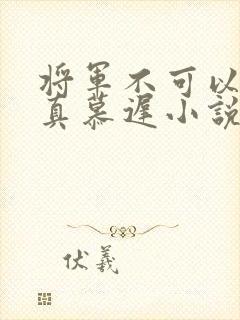 将军不可以
真慕遲小說
伏羲